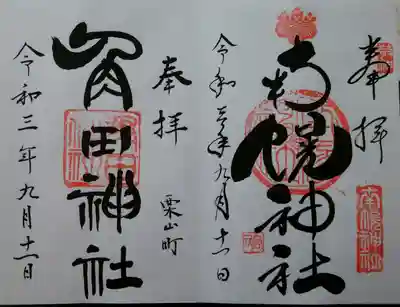 奉拝
南幌神社
令和三年九月十一日
南幌神社
奉拝
栗山町
角田神社
令和三年九月十一日